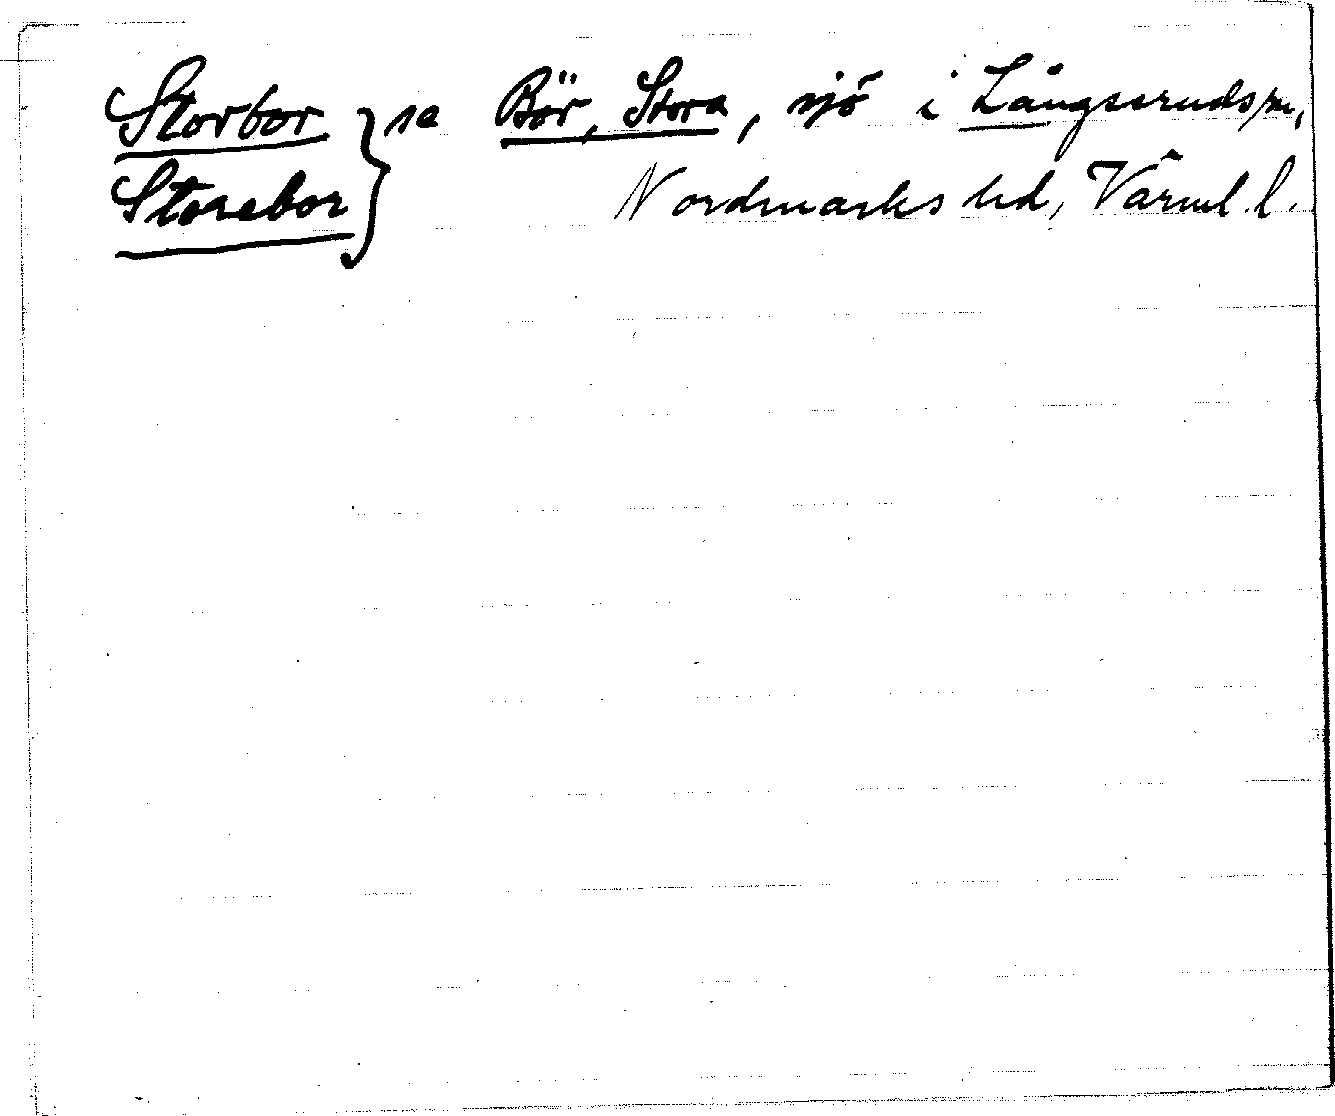 Storbor } se Bör, Stora, sjö i Långseruds sn,
Storebor } Nordmarks hd, Värml. l.